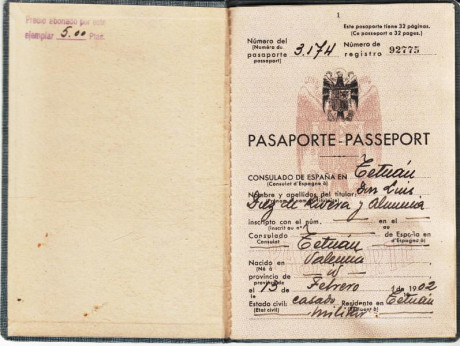 Precio abonado por este
ejemplar 5.00 Ptas.
1
Este pasaporte tiene 32 páginas.
(Ce passeport a 32 pages.)
Número del
(Numéro du
pasaporte
passeport)
3.174
Número de
registro 92775
PASAPORTE-PASSEPORT
CONSULADO DE ESPAÑA EN Tetuán
(Consulat d'Espagne à)
Nombre y apellidos del titular, Don Luis
Diez de Rivera y Almunia
inscripto con el núm. en el
(Inscrit au n.º
Consulado Tetuán de España en
Consulat d'Espagne à)
Nacido en Valencia
(Né à
provincia de id
el 13 de Febrero de 1902
Estado civil: casado Residente en Tetuán
(Etat civil)
militar